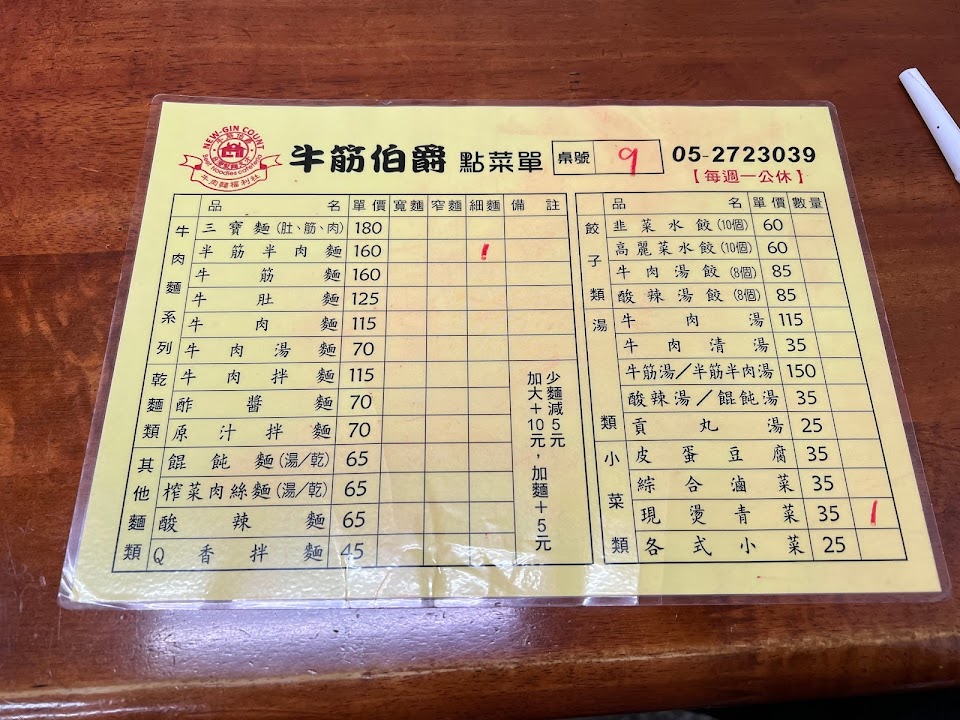 NEW-GIN COUNT
牛肉麵福利社
牛筋伯爵 點菜單
桌號 9
05-2723039
【每週一公休】
品名 單價 寬麵 窄麵 細麵 備註
牛肉麵系列
三寶麵(肚、筋、肉) 180
半筋半肉麵 160 1
牛筋麵 160
牛肚麵 125
牛肉麵 115
牛肉湯麵 70
乾麵類
牛肉拌麵 115
酢醬麵 70
原汁拌麵 70
其他麵類
餛飩麵(湯/乾) 65
榨菜肉絲麵(湯/乾) 65
酸辣麵 65
Q香拌麵 45
少麵減5元
加大+10元,加麵+5元
品名 單價 數量
餃子類
韭菜水餃(10個) 60
高麗菜水餃(10個) 60
牛肉湯餃(8個) 85
酸辣湯餃(8個) 85
湯類
牛肉湯 115
牛肉清湯 35
牛筋湯/半筋半肉湯 150
酸辣湯/餛飩湯 35
貢丸湯 25
小菜類
皮蛋豆腐 35
綜合滷菜 35
現燙青菜 35 1
各式小菜 25